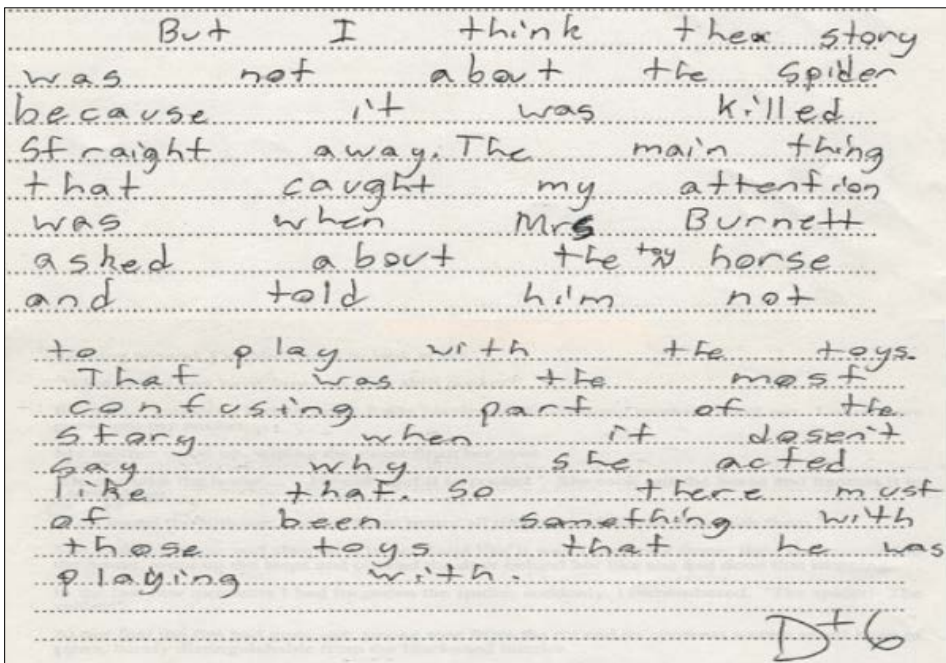 But I think the story
was not about the spider
because it was killed
straight away. The main thing
that caught my attention
was when Mrs Burnett
asked about the toy horse
and told him not
to play with the toys.
That was the most
confusing part of the
story when it dosen't
say why she acted
like that. So there must
of been something with
those toys that he was
playing with.
D+6